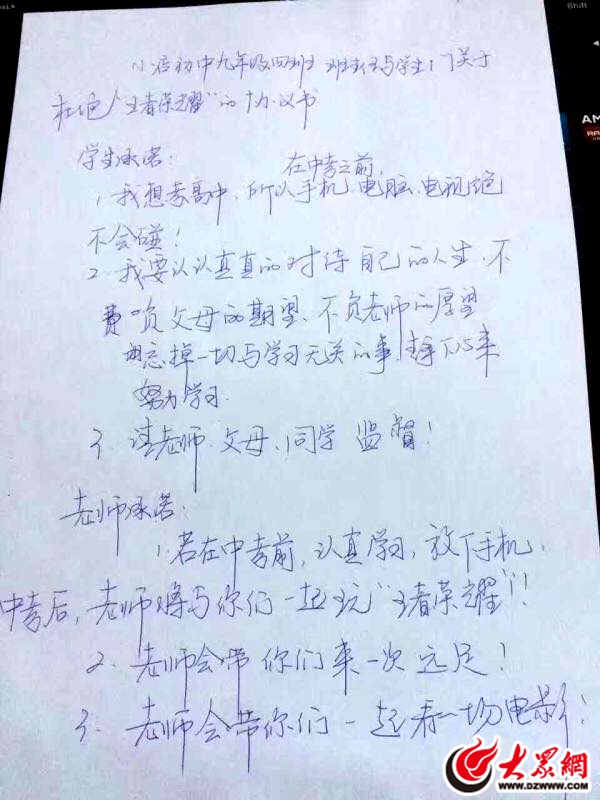 小店初中九年级四班 班主任与学生们关于
杜绝"王者荣耀"的协议书
学生承诺:
在中考之前,
1、我想考高中,所以手机、电脑、电视绝
不会碰!
2、我要认认真真的对待自己的人生,不
负父母的期望、不负老师的厚望
忘掉一切与学习无关的事,静下心来
努力学习.
3、请老师、父母、同学监督!
老师承诺:
1、若在中考前,认真学习,放下手机,
中考后,老师将与你们一起玩"王者荣耀"!
2、老师会带你们来一次远足!
3、老师会带你们一起看一场电影!
大众網
WWW.DZWWW.COM
Shift
AM